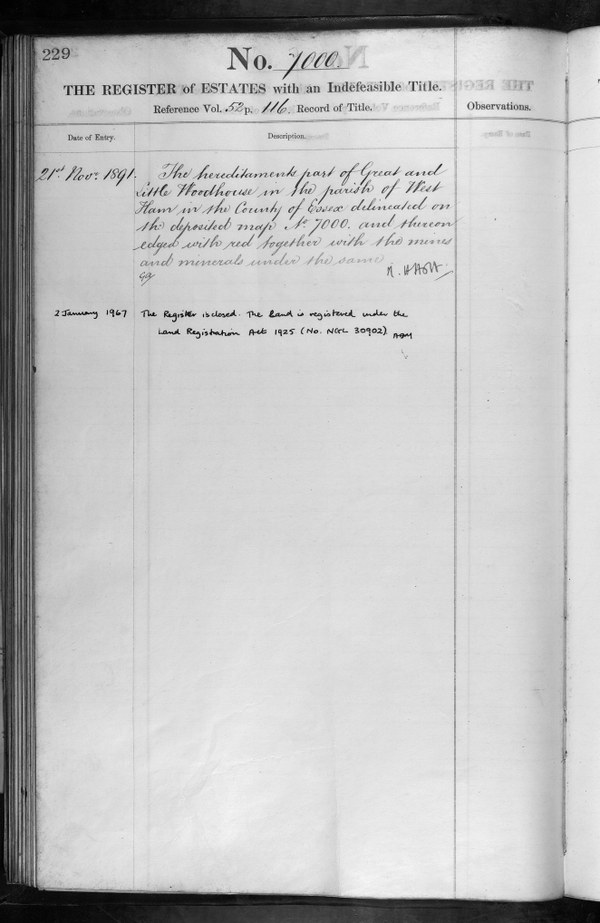 229
No. 7000
THE REGISTER of ESTATES with an Indefeasible Title.
Reference Vol. 52 p. 116. Record of Title.
Observations.
Date of Entry.
Description.
21st Novr. 1891.
The hereditaments part of Great and
Little Woodhouse in the parish of West
Ham in the County of Essex delineated on
the deposited map No. 7000. and thereon
edged with red together with the mines
and minerals under the same
2 January 1967
The Register is closed. The Land is registered under the
Land Registration Act 1925 (No. NGL 30902)